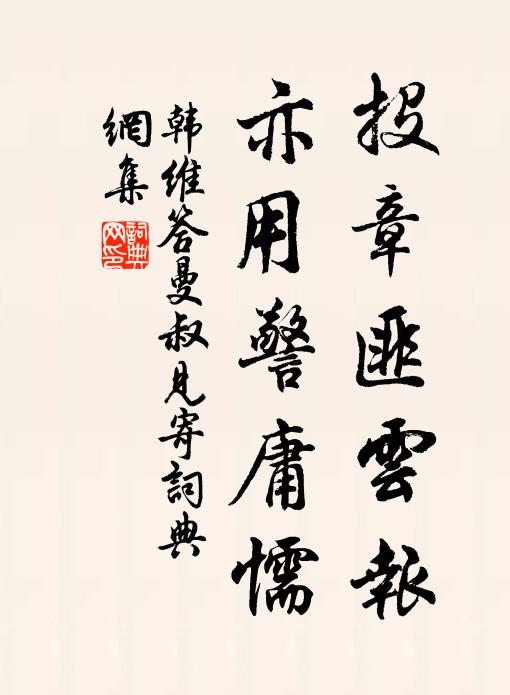 投章匪雲報
亦用警庸懦
韩维答曼叔见寄詞典
網集
詞典網印